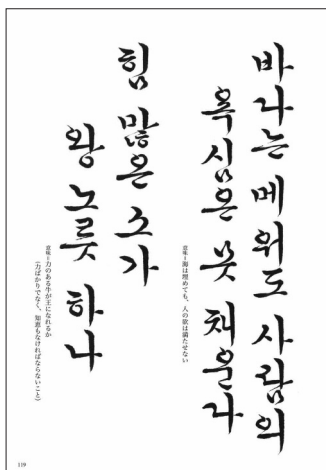 바다는 메워도 사람의
욕심은 못 채운다
意味=海は埋めても、人の欲は満たせない
힘 많은 소가
왕 노릇 하나
意味=力のある牛が王になれるか
(力ばかりでなく、知恵もなければならないこと)
119